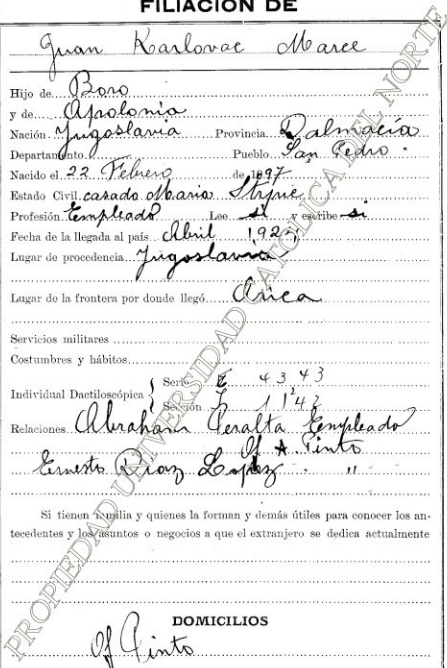 FILIACIÓN DE
Juan Karlovac Marce
Hijo de Boro
y de Apolonia
Nación Jugoslavia Provincia Dalmacía
Departamento Pueblo San Pedro.
Nacido el 22 Febrero de 1897
Estado Civil casado Maria Stipic
Profesión Empleado Lee si y escribe si
Fecha de la llegada al país Abril 192
Lugar de procedencia Jugoslavia
Lugar de la frontera por donde llegó Arica
Servicios militares
Costumbres y hábitos
Individual Dactiloscópica { Serie E 4343
Sección I 1142
Relaciones Abraham Peralta Empleado
Of A. Pinto
Ernesto Diaz Lopez "
Si tienen familia y quienes la forman y demás útiles para conocer los an-
tecedentes y los asuntos o negocios a que el extranjero se dedica actualmente
DOMICILIOS
Of Pinto
PROPIEDAD UNIVERSIDAD CATOLICA DEL NORTE